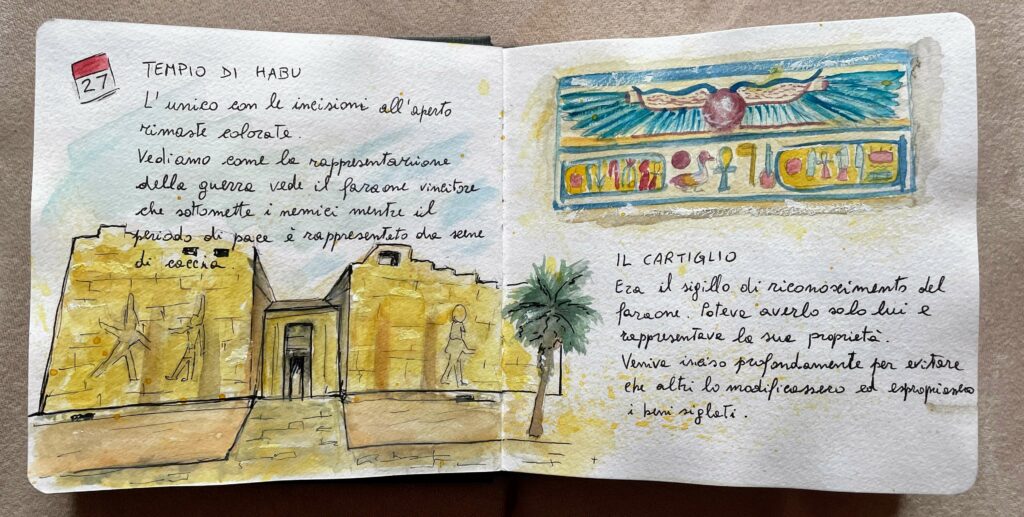 27
TEMPIO DI HABU
L'unico con le incisioni all'aperto
rimaste colorate.
Vediamo come la rappresentazione
della guerra vede il faraone vincitore
che sottomette i nemici mentre il
periodo di pace è rappresentato da scene
di caccia.
IL CARTIGLIO
Era il sigillo di riconoscimento del
faraone. Poteva averlo solo lui e
rappresentava la sua proprietà.
Veniva inciso profondamente per evitare
che altri lo modificassero ed espropiassero
i beni siglati.